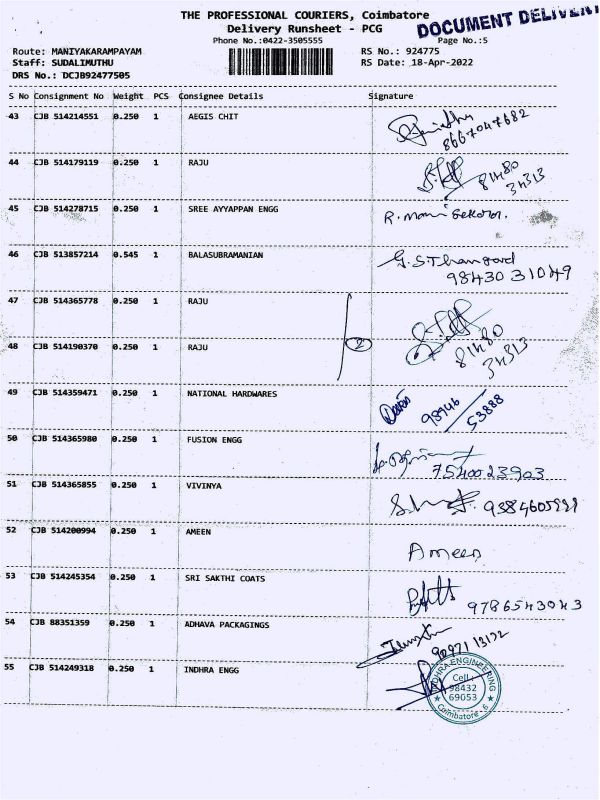 THE PROFESSIONAL COURIERS, Coimbatore
DOCUMENT DELIVERY
Delivery Runsheet - PCG
Phone No.:0422-3505555
Page No.:5
Route: MANIYAKARAMPAYAM
RS No.: 924775
Staff: SUDALIMUTHU
RS Date: 18-Apr-2022
DRS No.: DCJB92477505
S No Consignment No Weight PCS Consignee Details Signature
43 CJB 514214551 0.250 1 AEGIS CHIT
8667047682
44 CJB 514179119 0.250 1 RAJU
81480
34313
45 CJB 514278715 0.250 1 SREE AYYAPPAN ENGG R. Mani Sekaran.
46 CJB 513857214 0.545 1 BALASUBRAMANIAN
98430 31049
47 CJB 514365778 0.250 1 RAJU
2
48 CJB 514190370 0.250 1 RAJU
81480
34313
49 CJB 514359471 0.250 1 NATIONAL HARDWARES
98946
53888
50 CJB 514365980 0.250 1 FUSION ENGG
7540023903
51 CJB 514365855 0.250 1 VIVINYA
52 CJB 514200994 0.250 1 AMEEN Ameen
53 CJB 514245354 0.250 1 SRI SAKTHI COATS
9786543043
54 CJB 88351359 0.250 1 ADHAVA PACKAGINGS
55 CJB 514249318 0.250 1 INDHRA ENGG
INDHRA ENGINEERING
Cell :
98432
69053
Coimbatore - 6